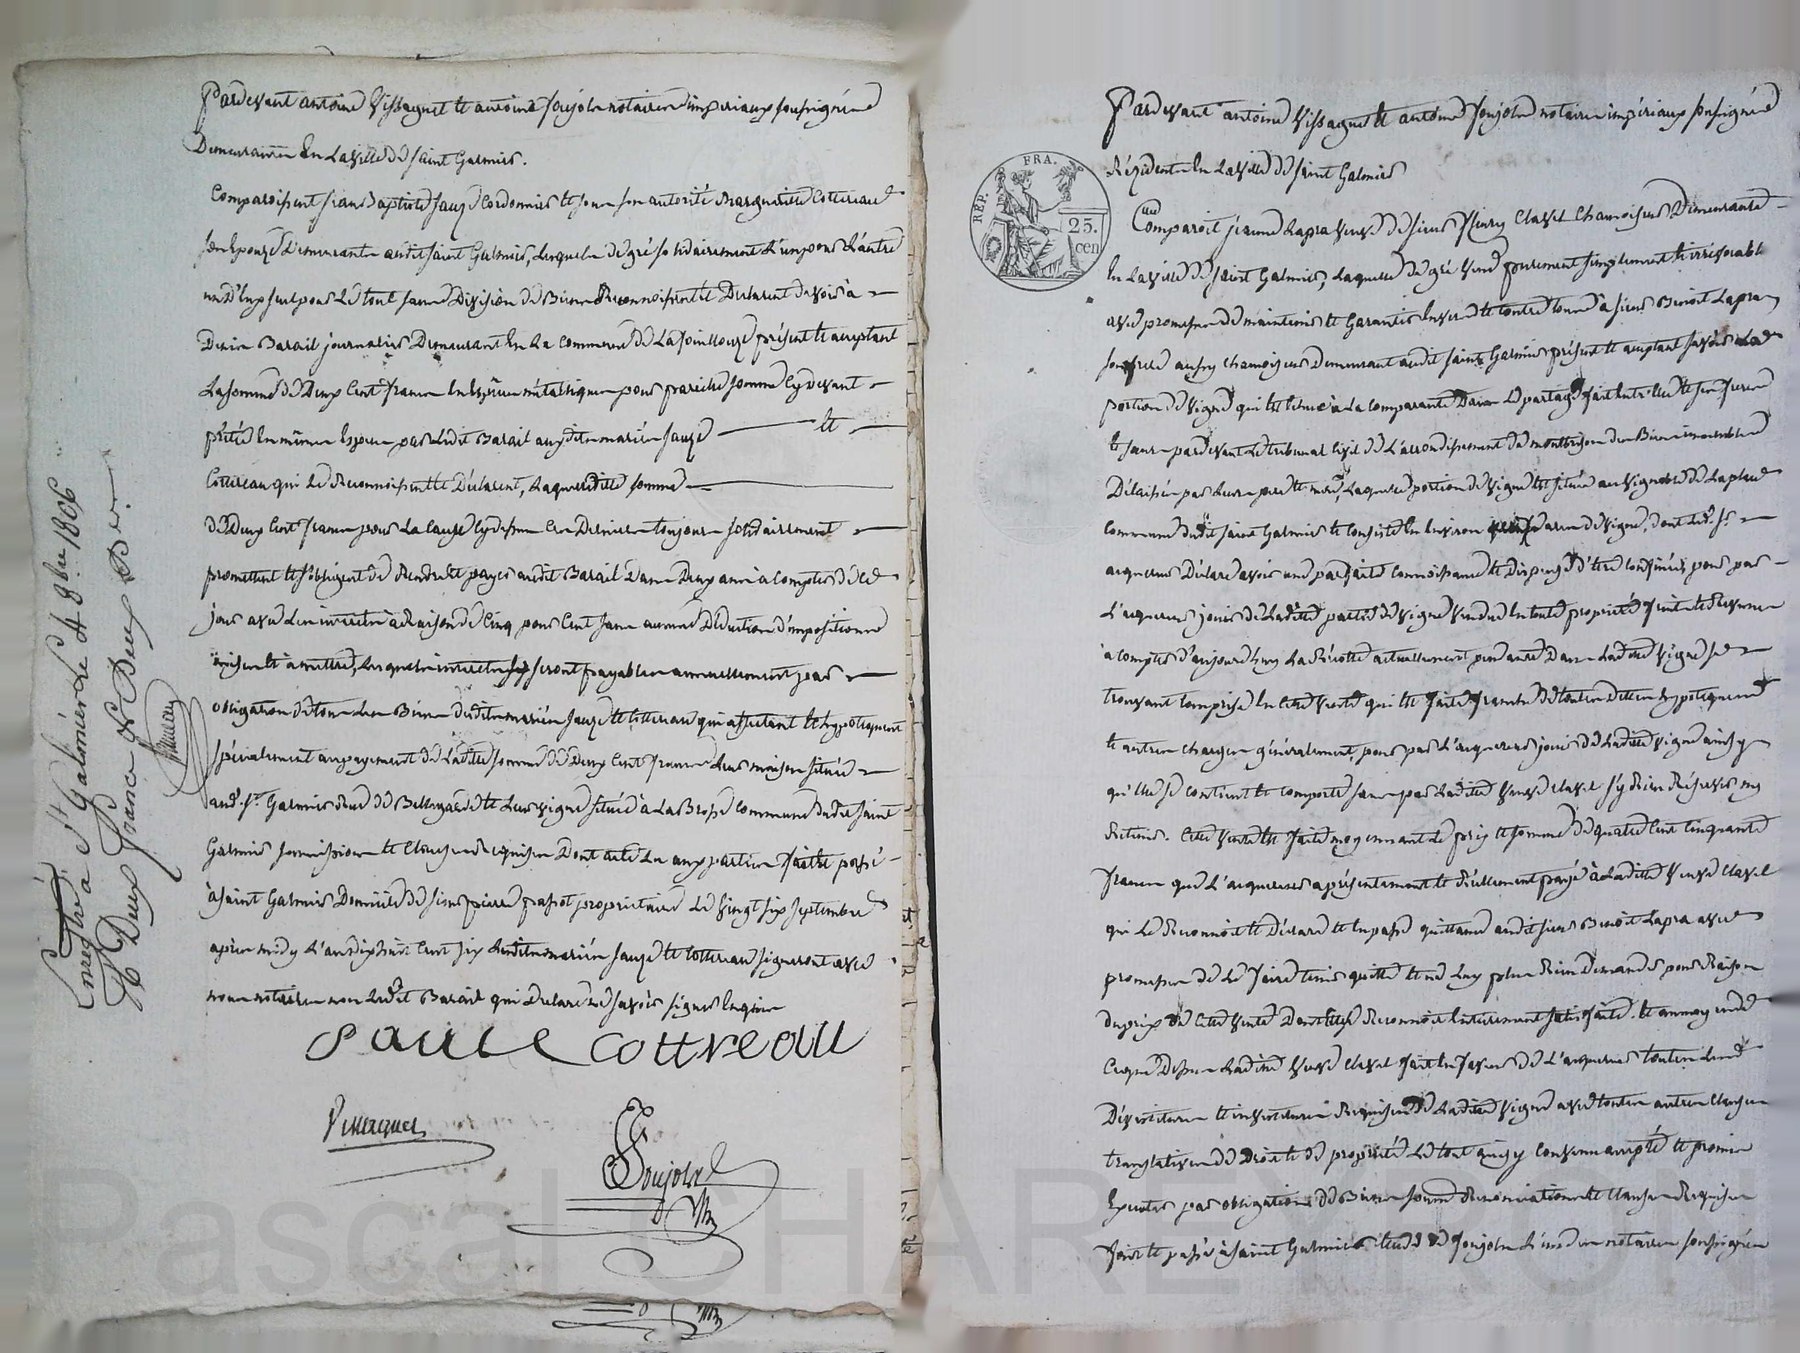 Pardevant antoine Vissaguet et antoine Soujols notaires impériaux soussignés
Demeurants En La ville de saint Galmier.
Comparoissent jean Baptiste sauze Cordonnier et sous son autorité Marguerite Cottereau
son Epouze Demeurants audit saint Galmier, Lesquels de gré solidairement L'un pour L'autre
un d'eux seul pour Le tout sans Division de Biens Reconnoissent et Declarent devoir à
Barail journalier Demeurant En La Commune de La fouillouze présent et acceptant
La somme de Deux Cent francs En Espèces métalliques pour pareille somme cy devant
prêtée En mêmes Espèces par Ledit Barail auxdits mariés sauze et
Cottereau qui Le Reconnoissent et Déclarent, Laquelle ditte somme
de Deux Cent francs pour La Cause cy dessus Ces Derniers toujours solidairement
promettent et s'obligent de Rendre et payer audit Barail Dans Deux ans à Compter de Ce
jour avec Les interêts à Raison de Cinq pour Cent sans aucune Déduction d'impositions
mises et à mettre, Lesquels interêts seront payables annuellement par
obligation de tous Les Biens desdits mariés sauze et Cottereau qui affectent et hypothequent
spécialement au payement de Laditte somme de Deux Cent francs Leur maison située
aud. St. Galmier Rue de Bellegarde et Leur vigne située à La Brosse Commune dudit saint
Galmier soumissions et Clauses requises Dont acte Lu aux parties fait et passé
à saint Galmier Domicile de sieur pierre passot propriétaire Le Vingt six septembre
après midy L'an dix huit Cent six Lesdits mariés sauze et Cottereau signeront avec
nous notaires non Ledit Barail qui a Declaré ne savoir signer Enquis
sauze cottreau
Vissaguet
Soujols
Enregistré à St Galmier Le 4 8bre 1806
Deux francs &
FRA.
REP.
25.
cen
Pardevant antoine Vissaguet et antoine Soujols notaires impériaux soussignés
Résidents En La ville de saint Galmier
Comparoit jeanne Lapra Veuve de sieur fleury Clavel Chamoiseur Demeurante
En La ville de saint Galmier, Laquelle de gré Vend purement simplement et irrévocablement
avec promesse de maintenir et Garantir Envers et contre tous à sieur Benoit Lapra
son frere aussy Chamoiseur demeurant audit saint Galmier présent et acceptant savoir La
portion de Vigne qui est Echue à La Comparante Dans Le partage fait Entr'elle et ses freres
et sœurs pardevant Le tribunal Civil de L'arrondissement de montbrison des Biens immeubles
Délaissés par Leurs pere et mere, Laquelle portion de Vigne est située au Vignoble de
Commune dudit saint Galmier et Consiste En Environ ares de Vigne, dont Led. Sr.
acquereur Déclare avoir une parfaite Connoissance et Dispense d'être Confinée, pour par
L'acquereur jouir de Laditte partie de Vigne Vendue En toute propriété fruits et Revenus
à Compter d'aujourd'huy La Récolte actuellement pendante Dans Laditte Vigne se
trouvant Comprise En Cette Vente qui est faite franche de toutes Dettes hypotheques
et autres Charges généralement, pour par L'acquereur jouir de Laditte Vigne ainsy
qu'elle se Contient et Comporte sans par Laditte Veuve Clavel s'y Rien Réserver ny
Retenir. Cette Vente est faite moyennant Le prix et somme de quatre Cent Cinquante
francs que L'acquereur a présentement et Réellement payé à Laditte Veuve Clavel
qui Le Reconnoit et déclare et En passe quittance audit sieur Benoit Lapra avec
promesse de Le faire tenir quitte et ne Luy plus Rien Demander pour Raison
du prix de Cette Vente Dont Elle se Reconnoit Entierement satisfaite. Et au moyen de
Ce que Dessus Laditte Veuve Clavel fait En faveur de L'acquereur toutes Les
Dévestitures et investitures Requises de Laditte Vigne avec toutes autres Clauses
translatives de Droits et de propriété Le tout ainsy Convenu accepté et promis
Executer par obligations de Biens soumissions Renonciations et Clauses Requises
fait et passé à saint Galmier Etude de Soujols L'un des notaires soussignés
Pascal CHAREYRON